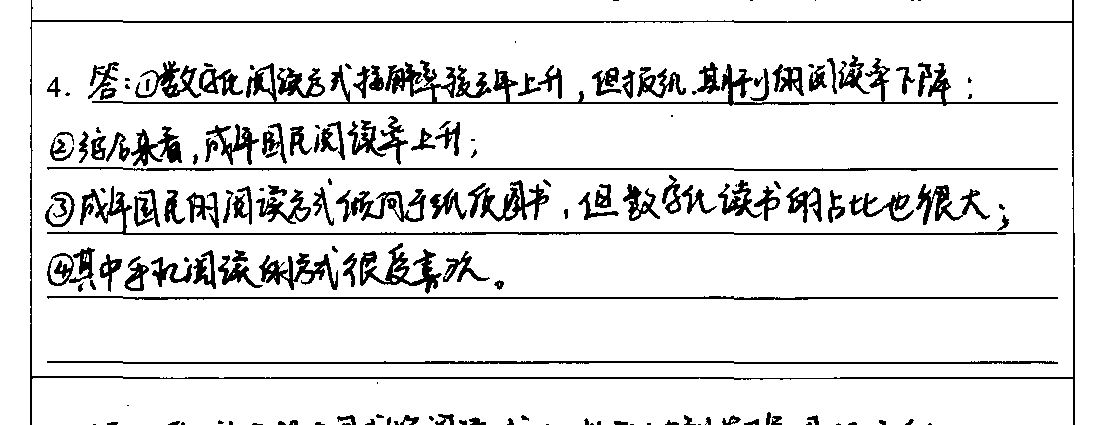 4. 答:①数字化阅读方式接触率较去年上升,但报纸、期刊的阅读率下降;
②综合来看,成年国民阅读率上升;
③成年国民的阅读方式倾向于纸质图书,但数字化读书的占比也很大;
④其中手机阅读的方式很受喜欢。